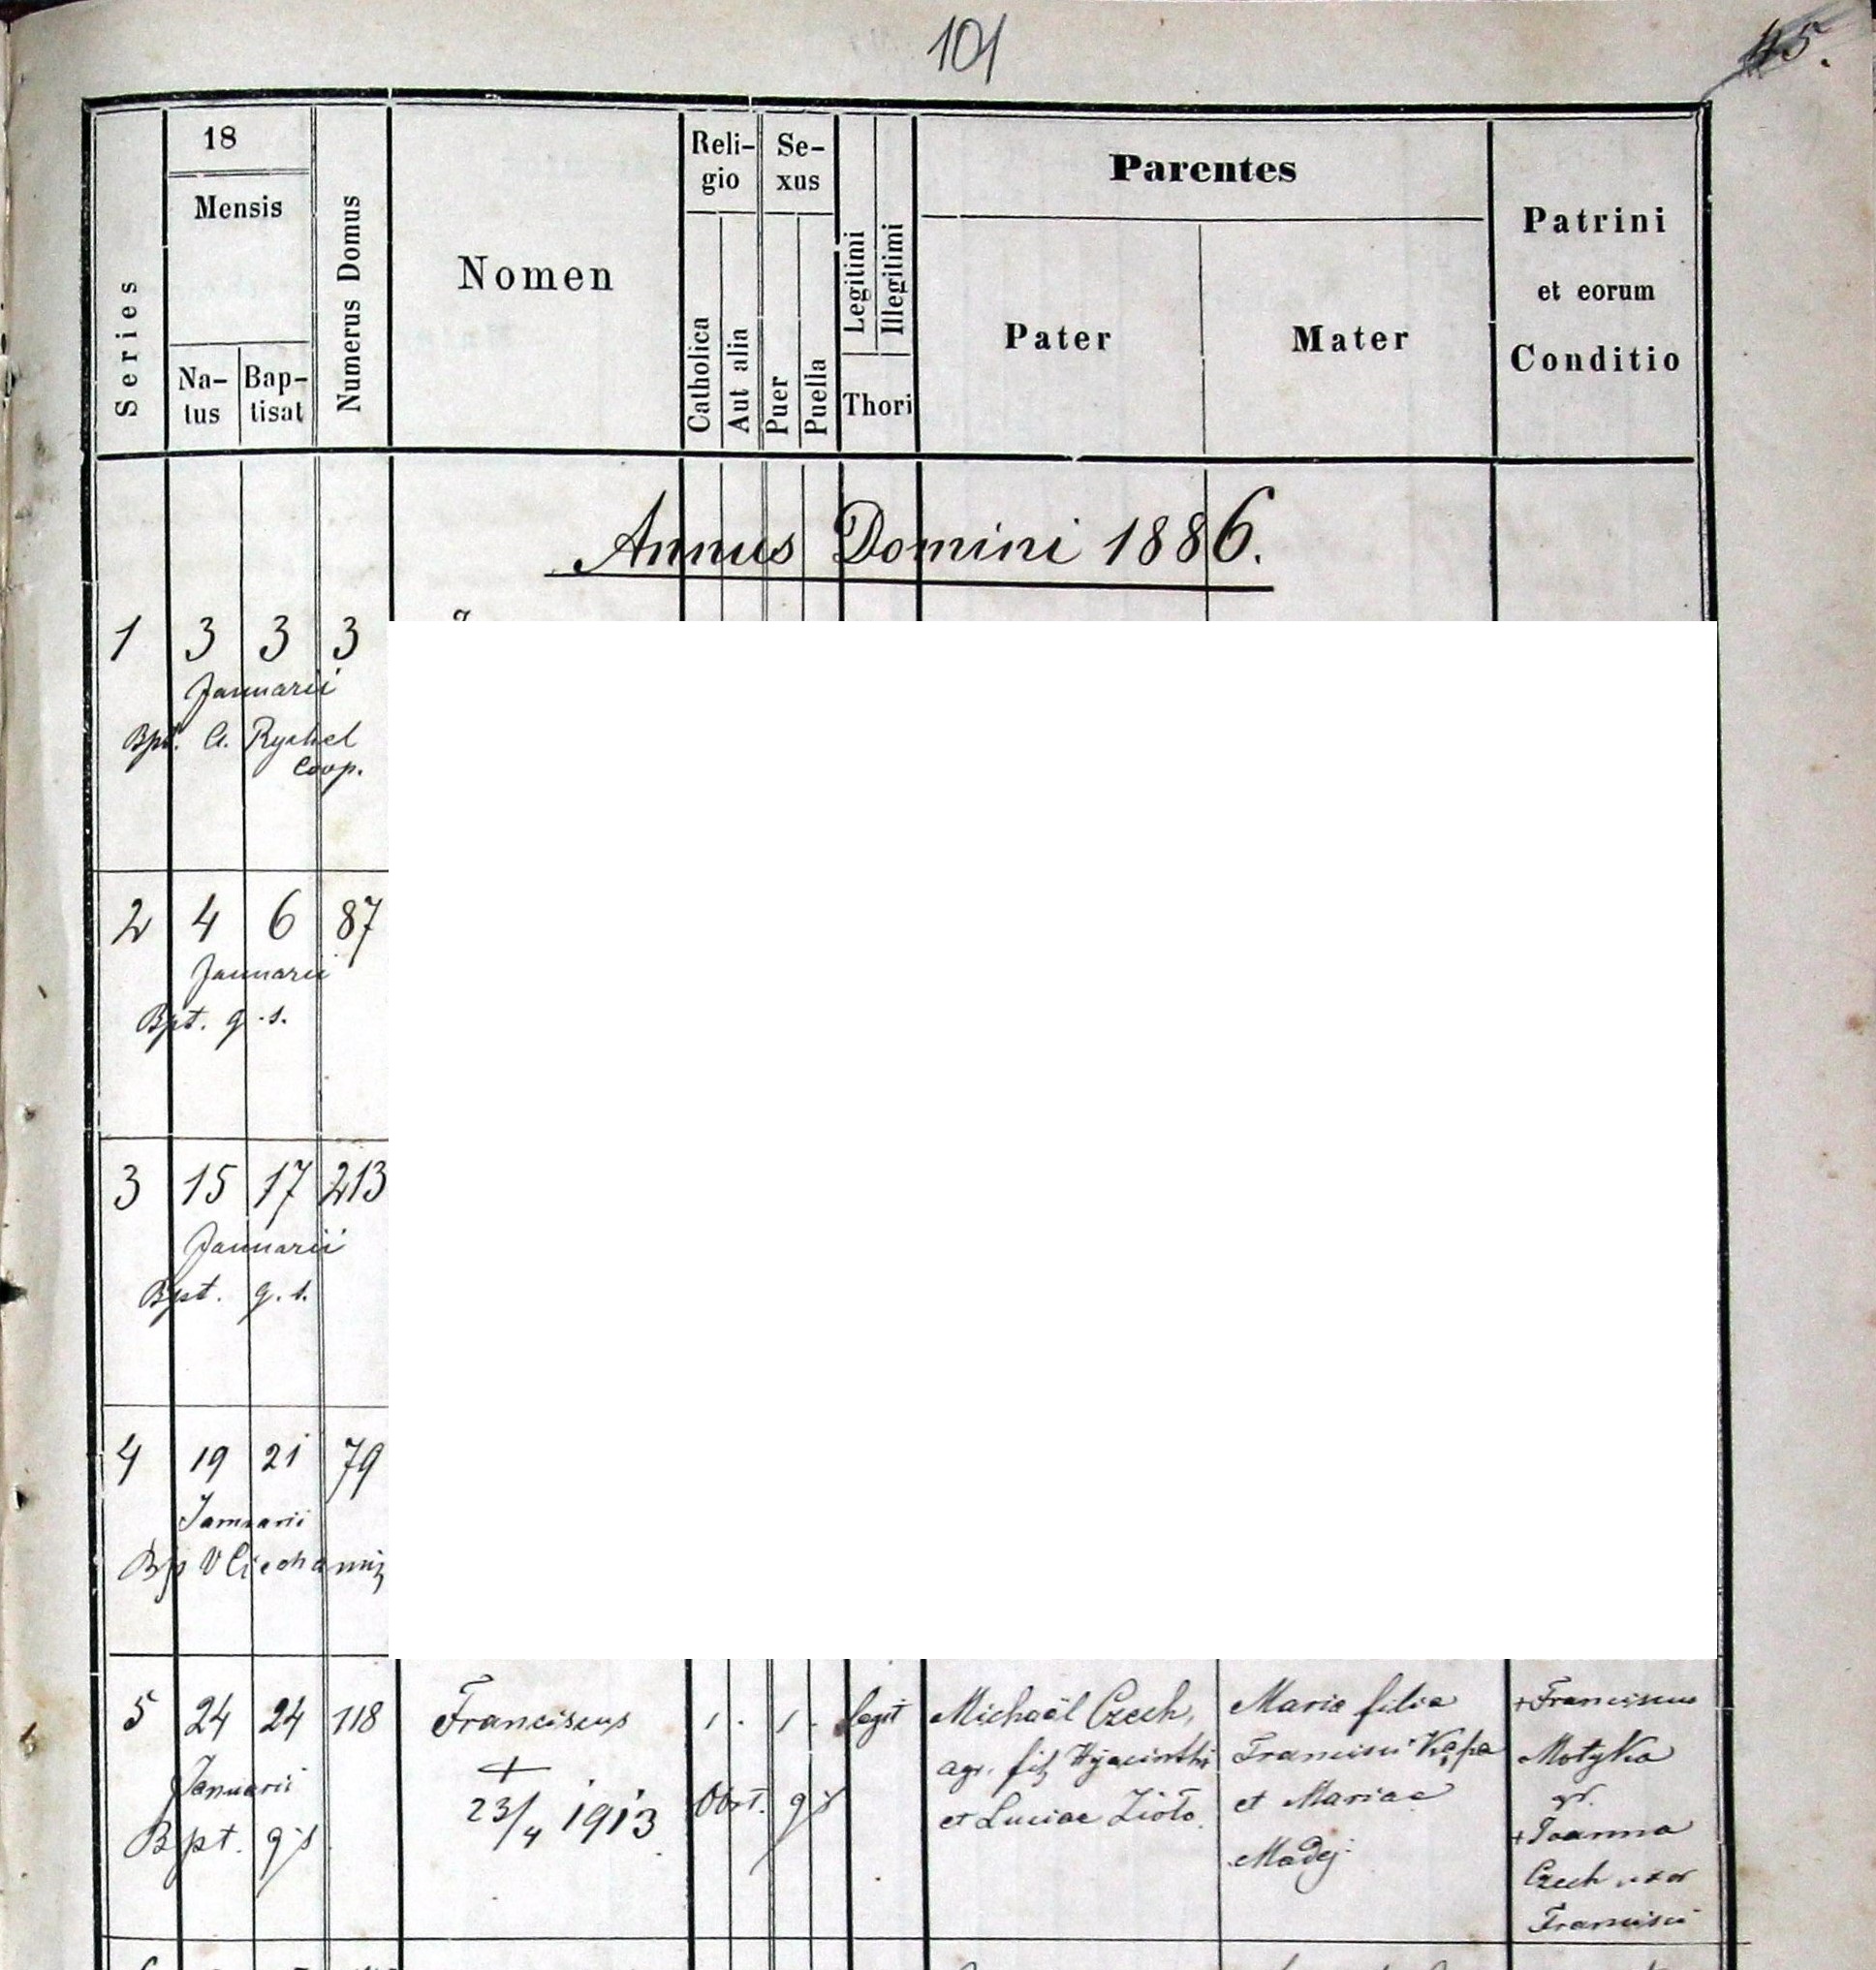 101
45.
Series
18
Mensis
Na-
tus
Bap-
tisat
Numerus Domus
Nomen
Reli-
gio
Catholica
Aut alia
Se-
xus
Puer
Puella
Legitimi
Illegitimi
Thori
Parentes
Pater
Mater
Patrini
et eorum
Conditio
Annus Domini 1886.
1 3 3 3
Januarii
Bpt. A.
Coop.
2 4 6 87
Januarii
Bpt. q.s.
3 15 17 213
Januarii
Bpt. q.s.
4 19 21 79
Januarii
Bp V
5 24 24 118
Januarii
Bpt. q s
Franciscus
+
23/4 1913
1. 1.
Obst. q s
legit
Michaël Czech,
agr. fil Hyacinthi
et Luciae Zioło.
Maria filia
Francisci
et Mariae
Madej.
+Franciscus
Motyka
+Joanna
Czech uxor
Francisci